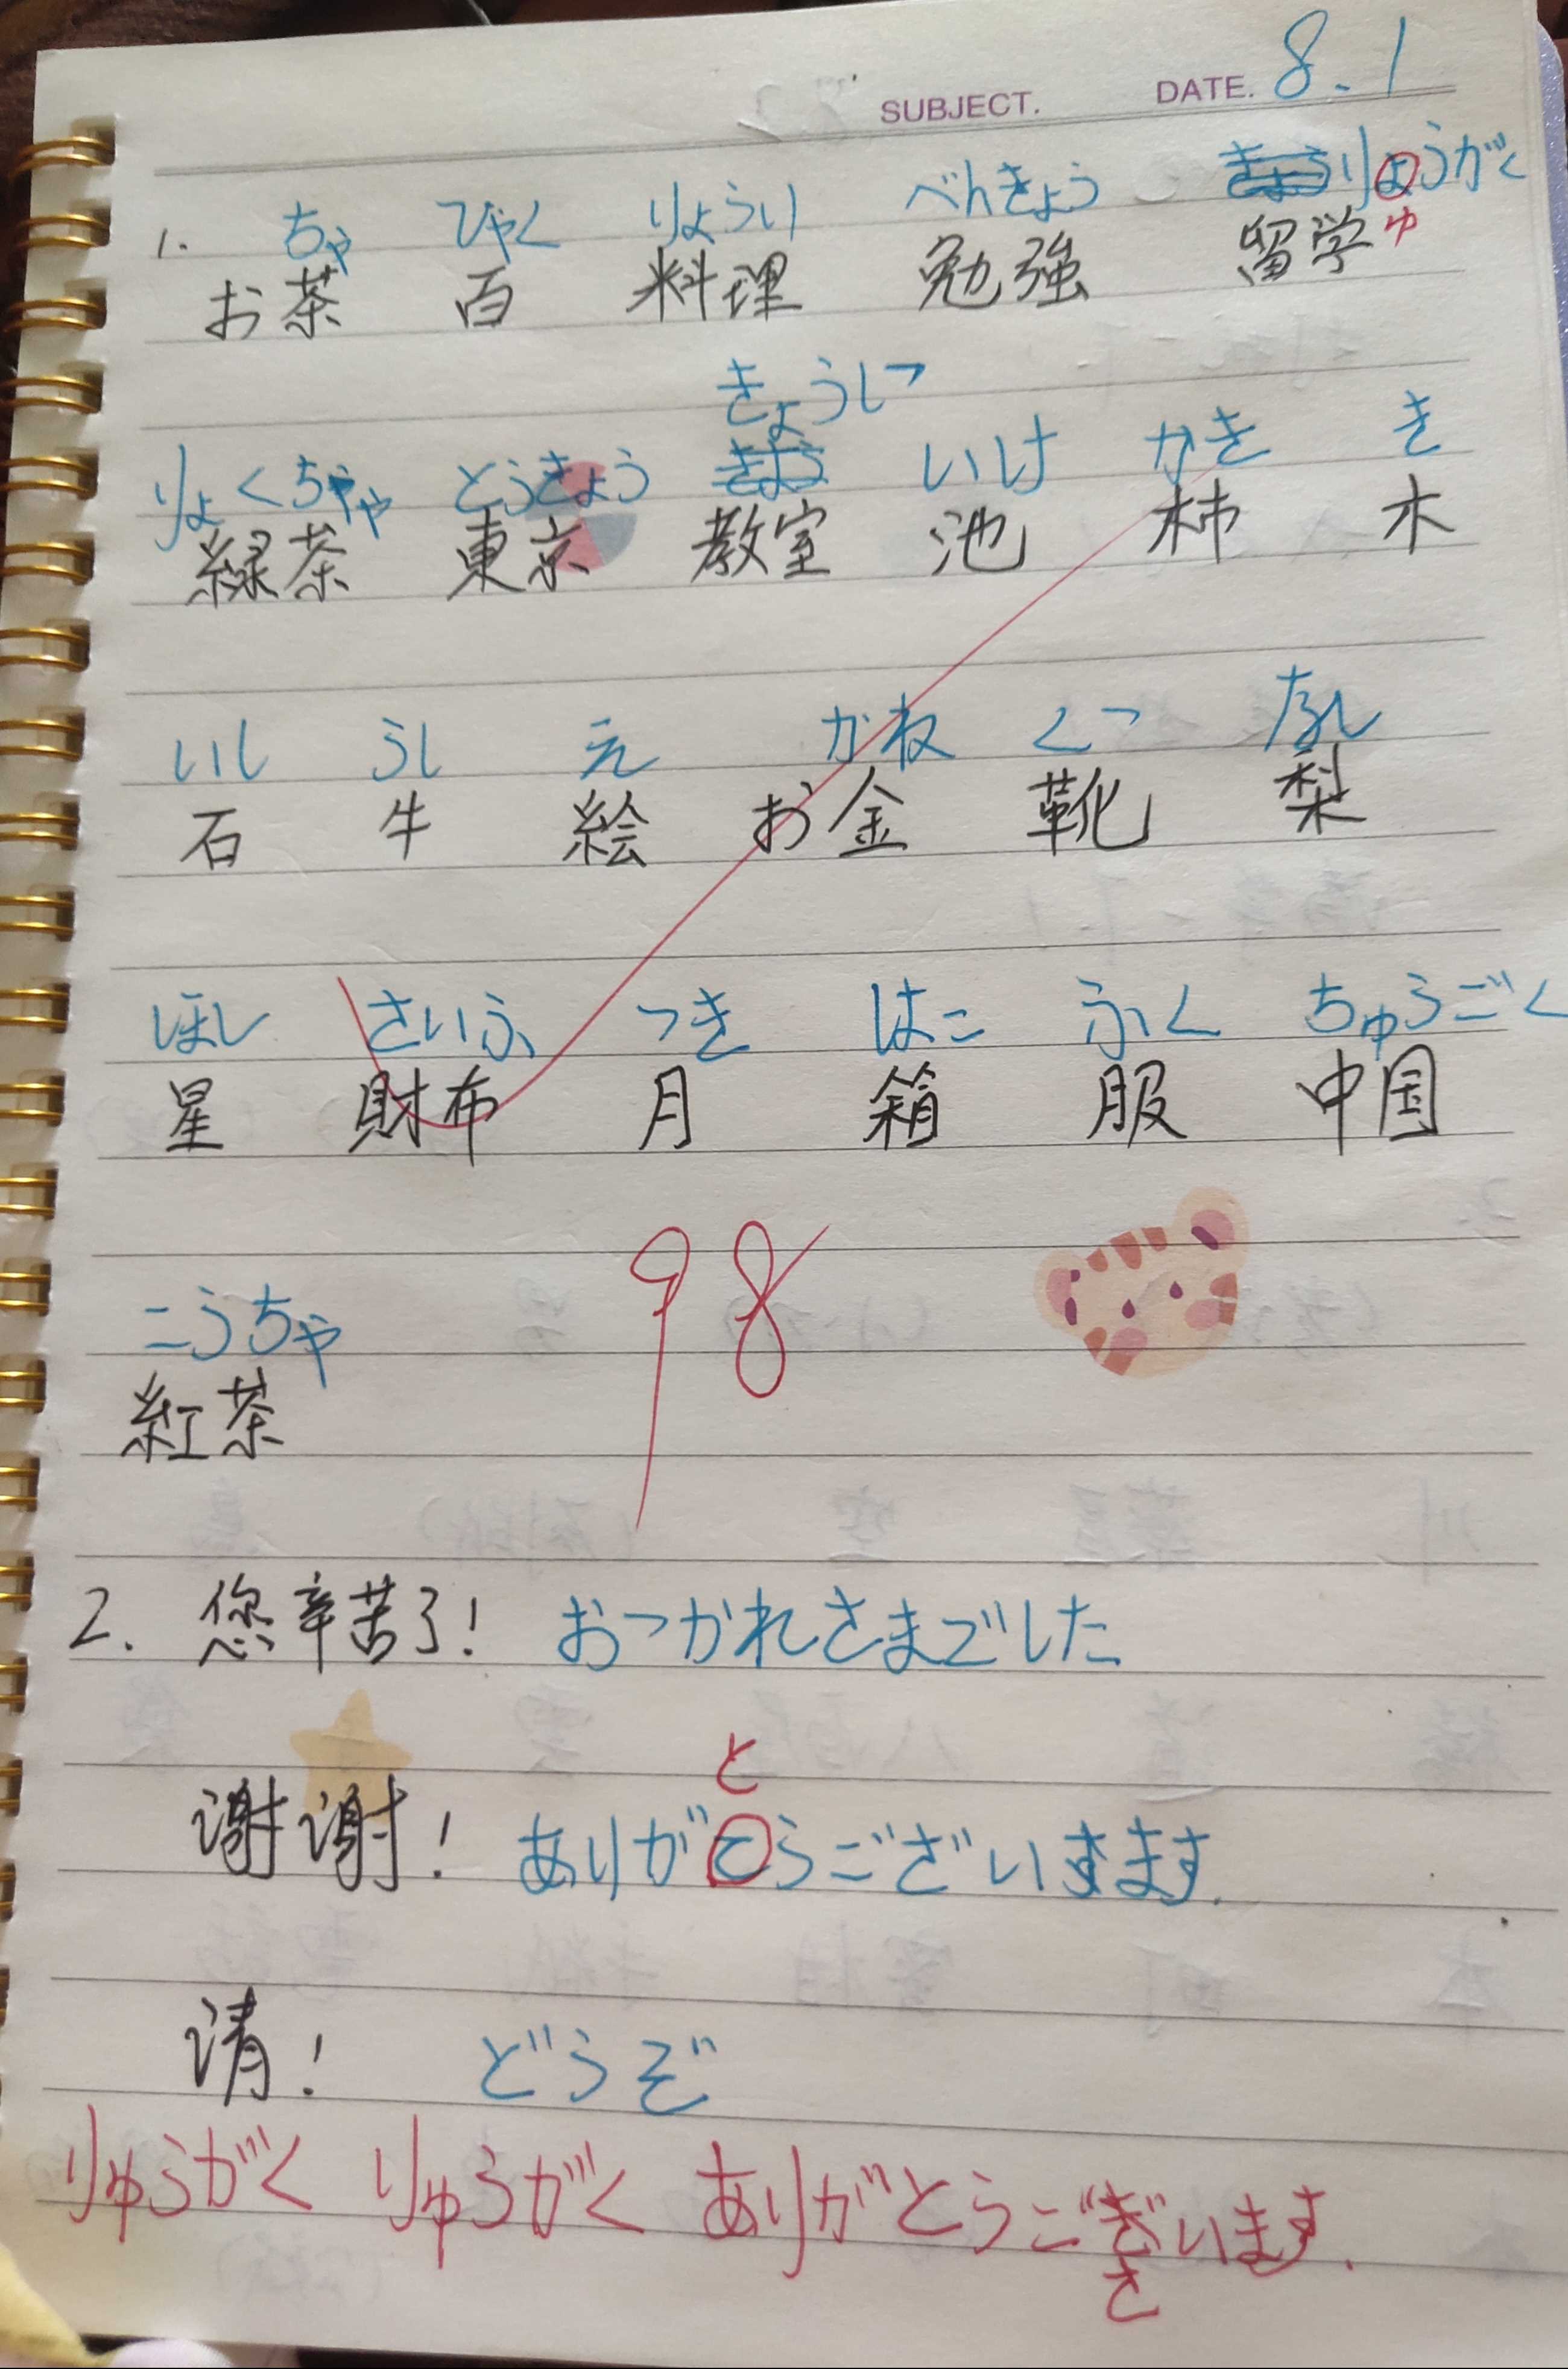 SUBJECT. DATE. 8.1
ちゃ ひゃく りょうり べんきょう りょうがく
ゅ
1. お茶 百 料理 勉強 留学
きょうしつ
りょくちゃ とうきょう いけ かき き
緑茶 東京 教室 池 柿 木
いし うし え かね くつ なし
石 牛 絵 お金 靴 梨
ほし さいふ つき はこ ふく ちゅうごく
星 財布 月 箱 服 中国
98
こうちゃ
紅茶
2. 您辛苦了! おつかれさまでした
と
谢谢! ありがこうございますます.
请! どうぞ
りゅうがく りゅうがく ありがとうございます.
さ